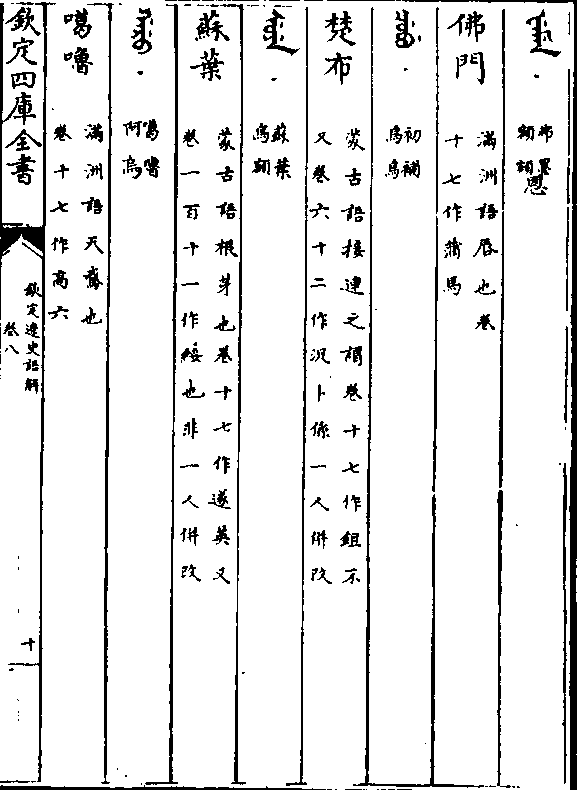 布墨
額額恩
佛門
滿洲語唇也卷
十七作蒲馬
初補
烏烏
楚布
蒙古語接連之謂卷十七作鉏不
又卷六十二作況卜係一人併改
蘇葉
烏額
蘇葉
蒙古語根芽也卷十七作遂英又
卷一百十一作綏也非一人併改
噶嚕
阿烏
噶嚕
滿洲語天鵞也
卷十七作高六
欽定四庫全書
欽定遼史語解
卷八
十